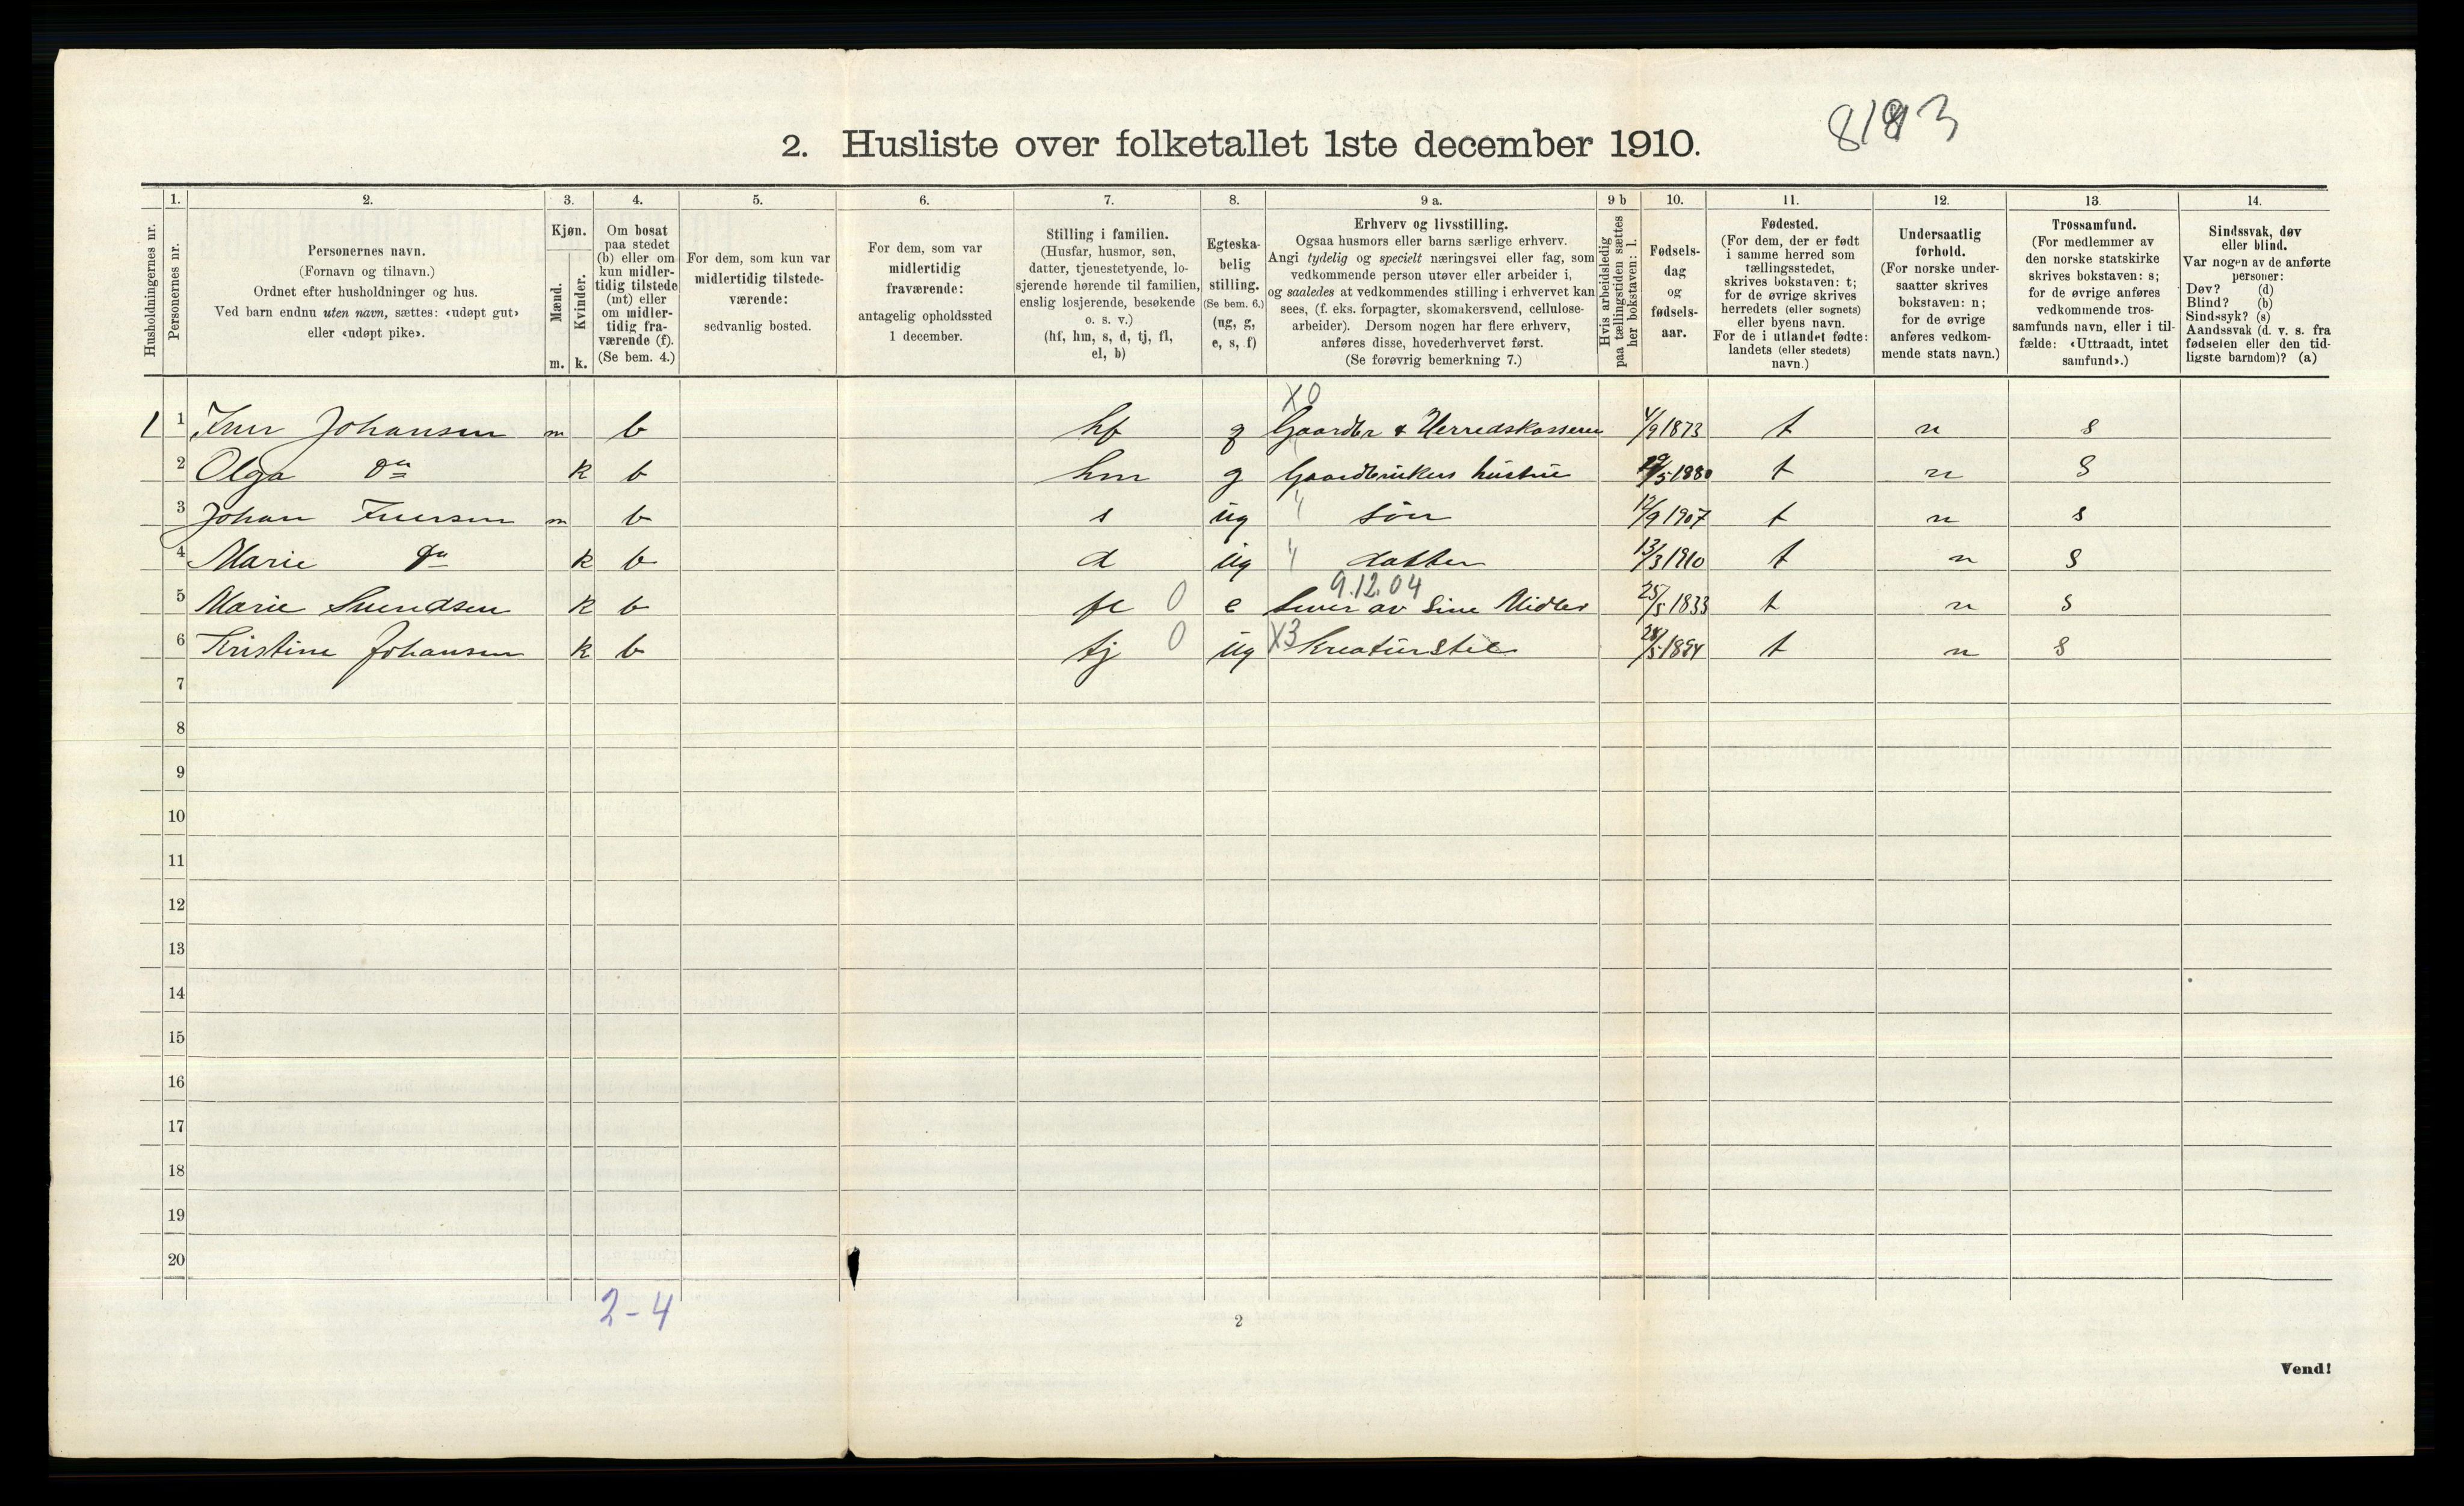 2. Husliste over folketallet 1ste december 1910.
Husholdningernes nr.
1.
Personernes nr.
2.
Personernes navn.
(Fornavn og tilnavn.)
Ordnet efter husholdninger og hus.
Ved barn endnu uten navn, sættes: «udøpt gut»
eller «udøpt pike».
3.
Kjøn.
Mænd.
Kvinder.
m. k.
4.
Om bosat
paa stedet
(b) eller om
kun midler-
tidig tilstede
(mt) eller
om midler-
tidig fra-
værende (f).
(Se bem. 4.)
5.
For dem, som kun var
midlertidig tilstede-
værende:
sedvanlig bosted.
6.
For dem, som var
midlertidig
fraværende:
antagelig opholdssted
1 december.
7.
Stilling i familien.
(Husfar, husmor, søn,
datter, tjenestetyende, lo-
sjerende hørende til familien,
enslig losjerende, besøkende
o. s. v.)
(hf, hm, s, d, tj, fl,
el, b)
8.
Egteska-
belig
stilling.
(Se bem. 6.)
(ug, g,
e, s, f)
9 a.
Erhverv og livsstilling.
Ogsaa husmors eller barns særlige erhverv.
Angi tydelig og specielt næringsvei eller fag, som
vedkommende person utøver eller arbeider i,
og saaledes at vedkommendes stilling i erhvervet kan
sees, (f. eks. forpagter, skomakersvend, cellulose-
arbeider). Dersom nogen har flere erhverv,
anføres disse, hovederhvervet først.
(Se forøvrig bemerkning 7.)
9 b
Hvis arbeidsledig
paa tællingstiden sættes
her bokstaven: l.
10.
Fødsels-
dag
og
fødsels-
aar.
11.
Fødested.
(For dem, der er født
i samme herred som
tællingsstedet,
skrives bokstaven: t;
for de øvrige skrives
herredets (eller sognets)
eller byens navn.
For de i utlandet fødte:
landets (eller stedets)
navn.)
12.
Undersaatlig
forhold.
(For norske under-
saatter skrives
bokstaven: n;
for de øvrige
anføres vedkom-
mende stats navn.)
13.
Trossamfund.
(For medlemmer av
den norske statskirke
skrives bokstaven: s;
for de øvrige anføres
vedkommende tros-
samfunds navn, eller i til-
fælde: «Uttraadt, intet
samfund».)
14.
Sindssvak, døv
eller blind.
Var nogen av de anførte
personer:
Døv? (d)
Blind? (b)
Sindssyk? (s)
Aandssvak (d. v. s. fra
fødselen eller den tid-
ligste barndom)? (a)
X0
1 1 Iver Johansen m b hf g Gaardbr & Herredskasserer 4/9 1873 t n s
2 Olga do k b hm g Gaardbrukers hustru 5 1880 t n s
3 Johan Iversen m b s ug " søn 12/9 1907 t n s
4 Marie do k b d ug " datter 13/3 1910 t n s
9.12.04
5 Marie Svendsen k b fl 0 e Lever av sine Midler 25/5 1833 t n s
6 Kristine Johansen k b tj 0 ug X3 Kreaturstel 28/5 1894 t n s
7
8
9
10
11
12
13
14
15
16
17
18
19
20
2-4
2
Vend!